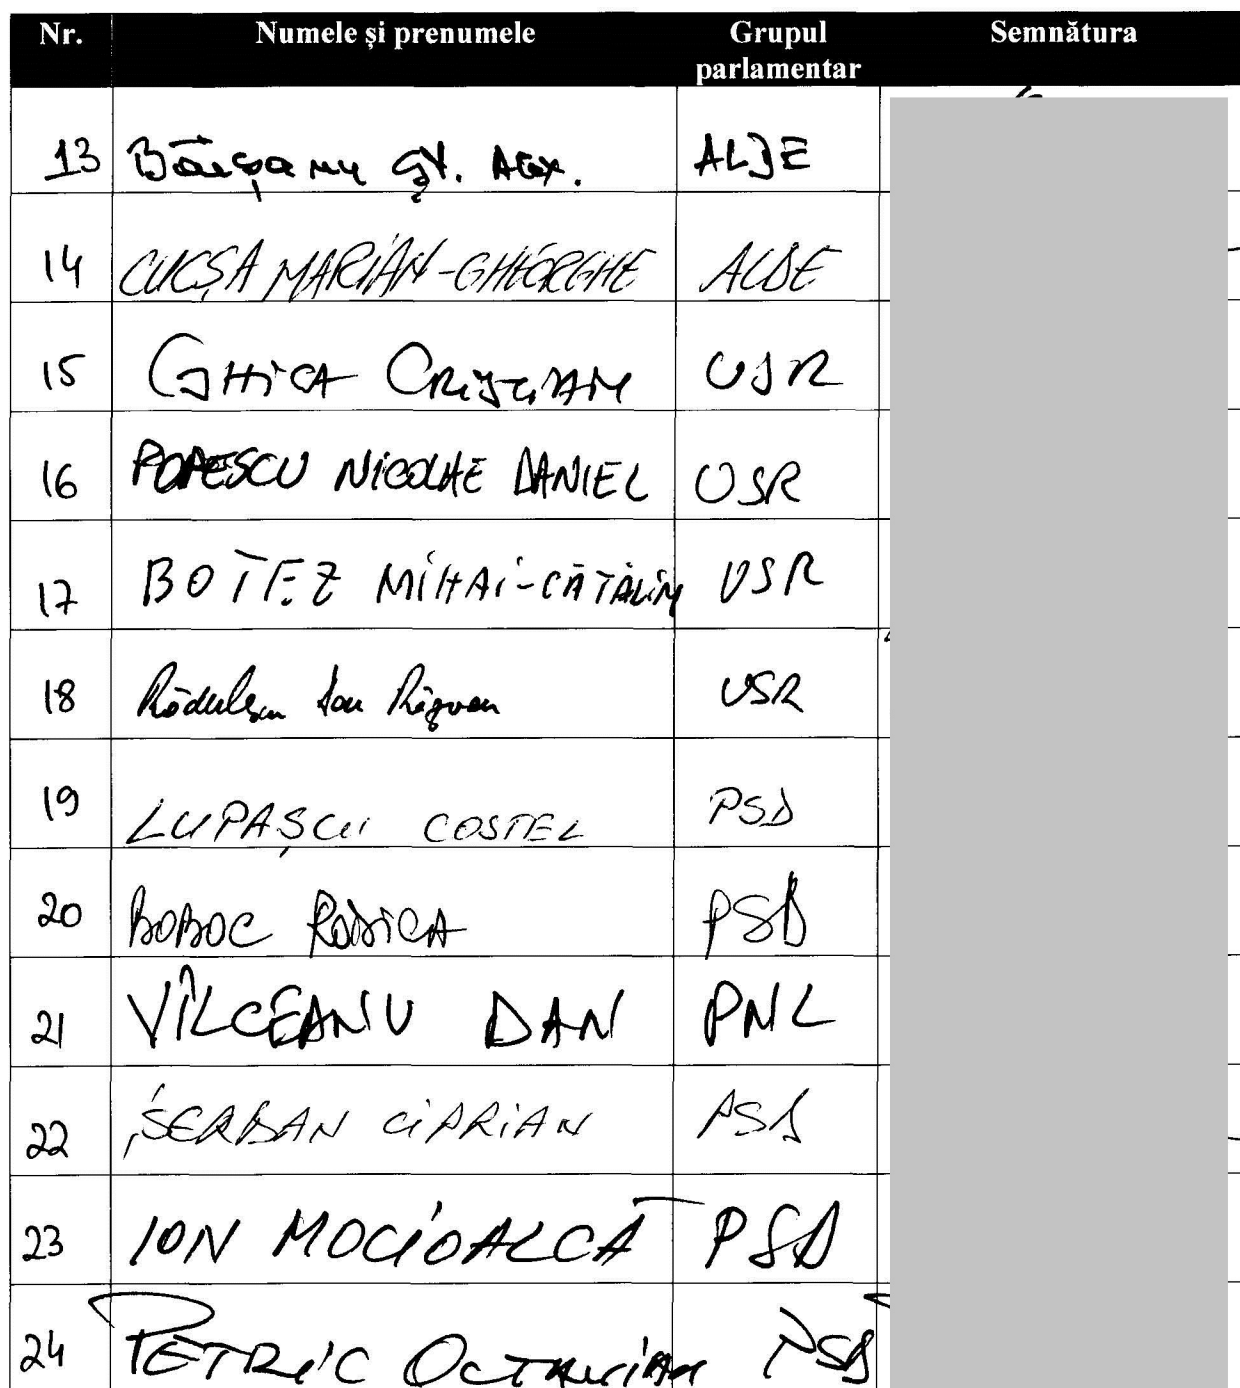 Nr. Numele și prenumele Grupul parlamentar Semnătura
13 ALDE
14 CUCȘA MARIAN-GHEORGHE ALDE
15 GHICA CRISTIAN USR
16 POPESCU NICOLAE DANIEL USR
17 BOTEZ MIHAI-CĂTĂLIN USR
18 Rădulescu Ion Răzvan USR
19 LUPAȘCU COSTEL PSD
20 BOBOC RODICA PSD
21 VÎLCEANU DAN PNL
22 ȘERBAN CIPRIAN PSD
23 ION MOCIOALCĂ PSD
24 PETRIC OCTAVIAN PSD